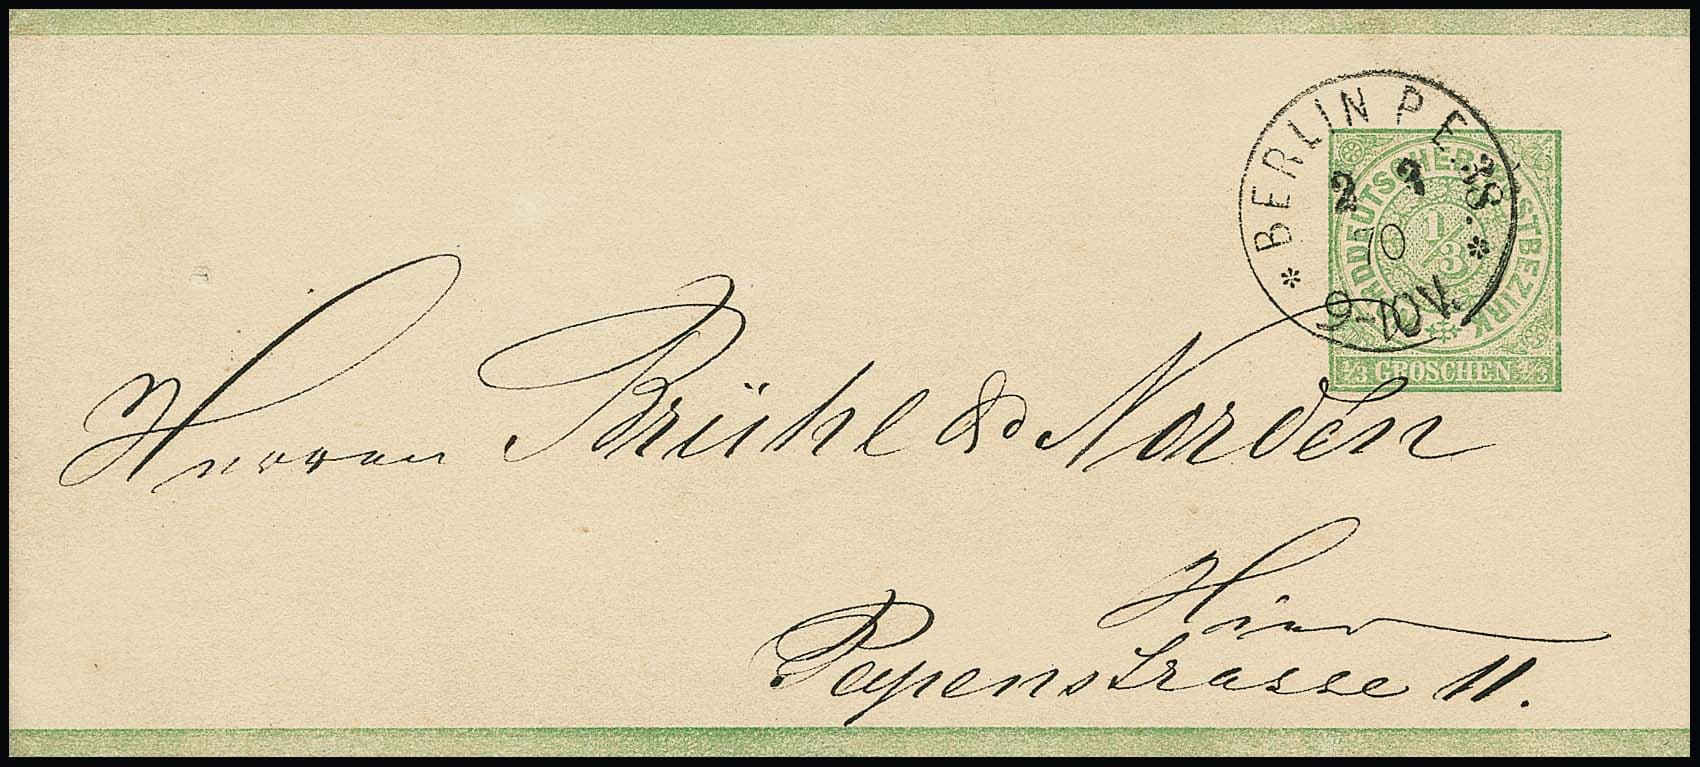 BERLIN P.E. 38
2 7
10
9-10V.
NORDDEUTSCHER POSTBEZIRK
1/3
1/3 GROSCHEN 1/3
Herren Brühl & Norden
Hier
Papenstrasse 11.